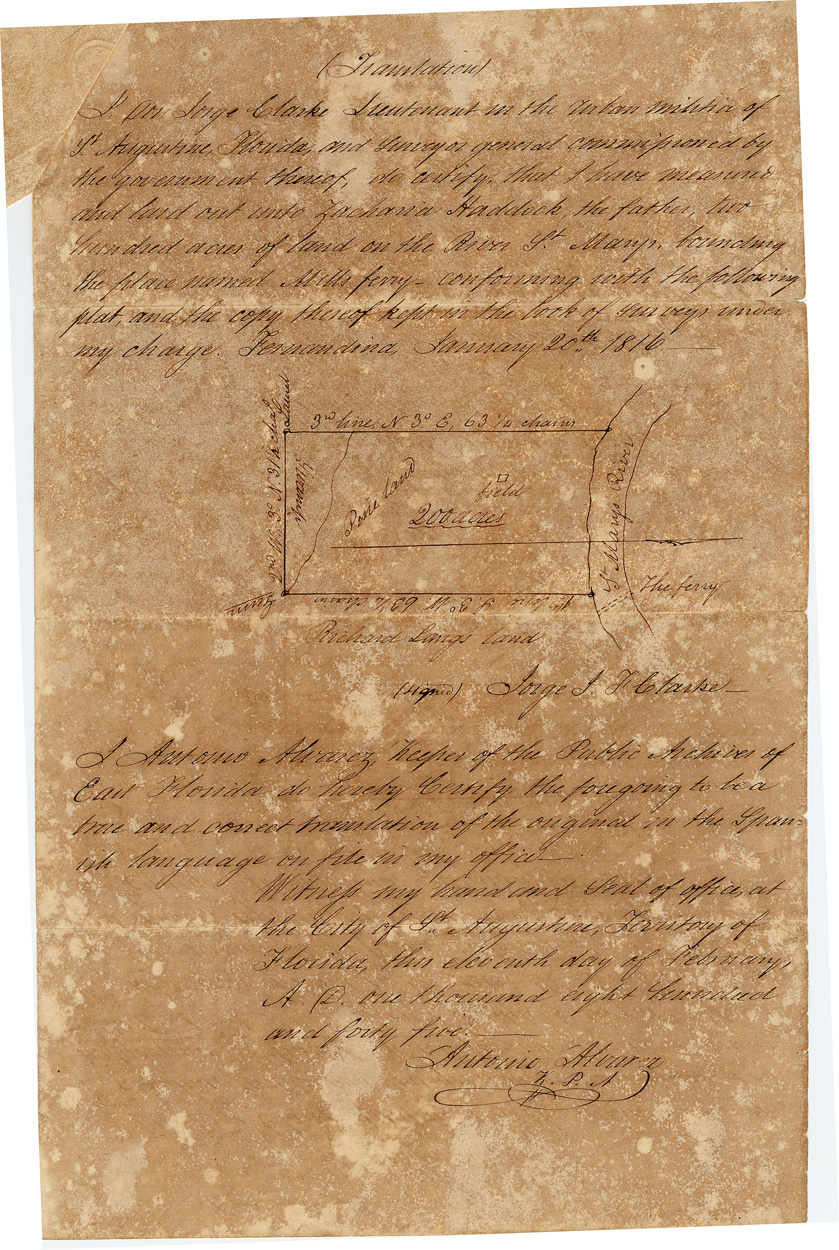 (Translation)
I Don Jorge Clarke Lieutenant in the urban militia of
St Augustine, Florida, and surveyor general commissioned by
the government thereof, do certify, that I have measured
and laid out unto Zacharia Haddock, the father, two
hundred acres of land on the River St. Marys. bounding
the place named Mills ferry - conforming with the following
plat, and the copy thereof kept in the book of surveys under
my charge. Fernandina, January 20th 1816
Laurel
3rd line, N 3° E, 63 1/4 chains
2nd W. 3° N 31 1/2 chs
Swamp
Pine land
field
200 acres
St Marys River
The ferry
1st line S. 3° W 63 1/4 chains
Richard Langs land
(signed) Jorge J. F Clarke
I Antonio Alvarez, Keeper of the Public Archives of
East Florida do hereby Certify the foregoing to be a
true and correct translation of the original in the Span-
ish language on file in my office
Witness my hand and Seal of office, at
the City of St. Augustine, Territory of
Florida, this eleventh day of February,
A. D. one thousand eight hundred
and forty five.
Antonio Alvarez
K. P. A